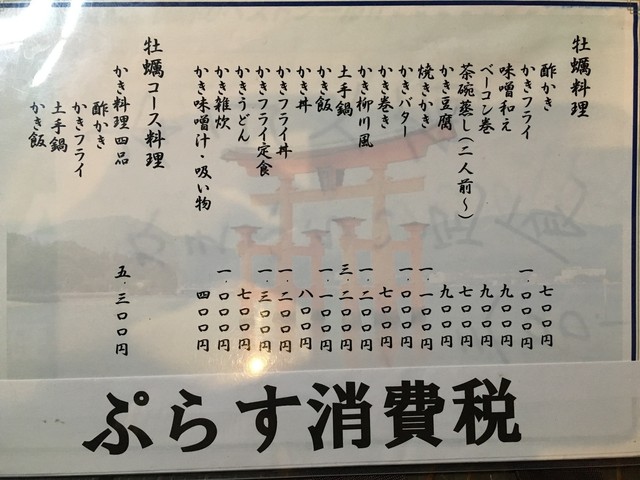 牡蠣料理
酢かき 七〇〇円
かきフライ 一.〇〇〇円
味噌和え 九〇〇円
ベーコン巻 九〇〇円
茶碗蒸し(二人前~) 七〇〇円
かき豆腐 九〇〇円
焼きかき 一.一〇〇円
かきバター 一.〇〇〇円
かき巻き 七〇〇円
かき柳川風 一.二〇〇円
土手鍋 三.二〇〇円
かき飯 一.一〇〇円
かき丼 八〇〇円
かきフライ丼 一.二〇〇円
かきフライ定食 一.三〇〇円
かきうどん 七〇〇円
かき雑炊 一.〇〇〇円
かき味噌汁・吸い物 四〇〇円
牡蠣コース料理
かき料理四品 五.三〇〇円
酢かき
かきフライ
土手鍋
かき飯
ぷらす消費税